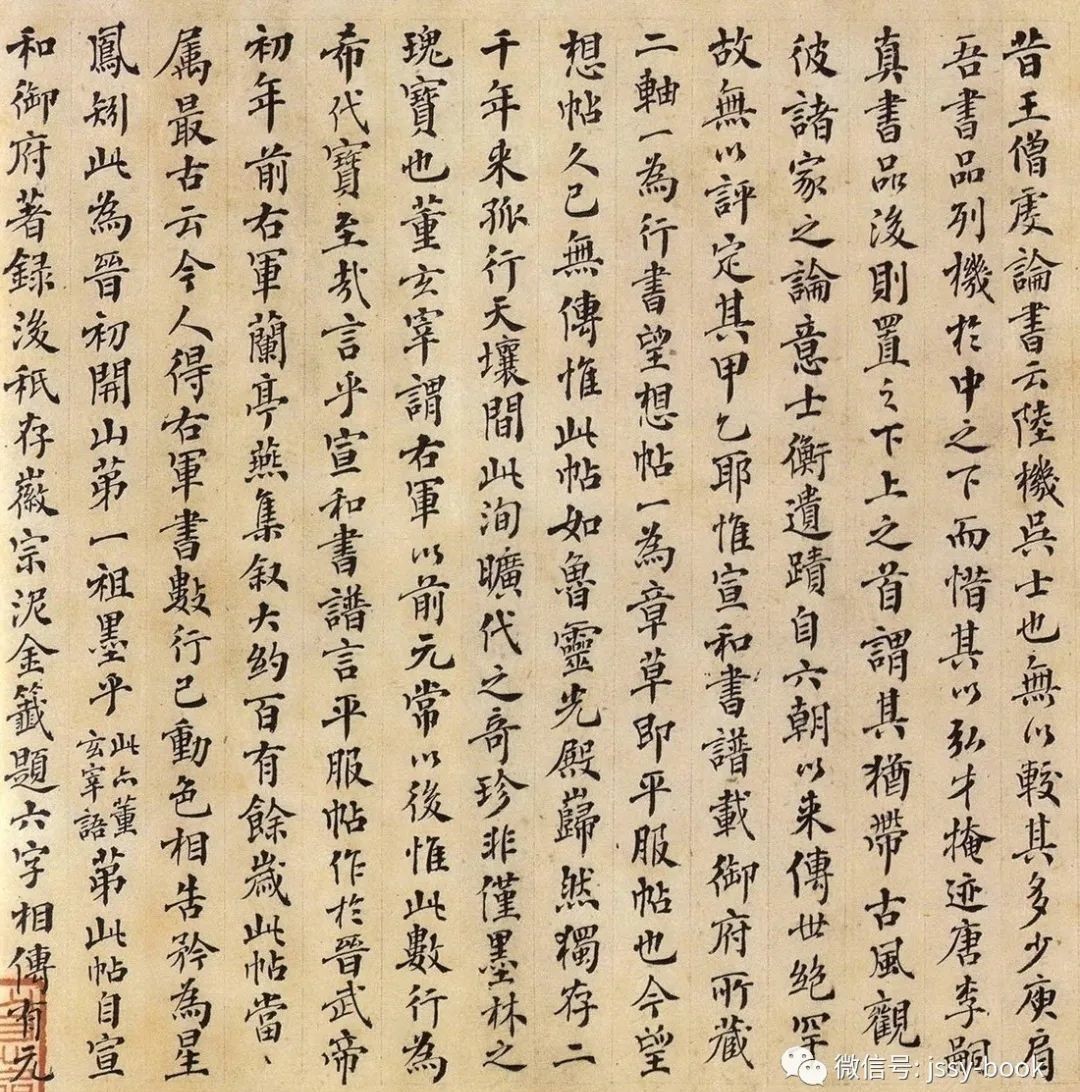 昔王僧虔論書云陸機吳士也無以較其多少庾肩
吾書品列機於中之下而惜其以弘才掩迹唐李嗣
真書品後則置之下上之首謂其猶帶古風觀
彼諸家之論意士衡遺蹟自六朝以来傳世絶罕
故無以評定其甲乙耶惟宣和書譜載御府所藏
二軸一為行書望想帖一為章草即平服帖也今望
想帖久已無傳惟此帖如魯靈光殿巋然獨存二
千年来孤行天壤間此洵曠代之奇珍非僅墨林之
瑰寶也董玄宰謂右軍以前元常以後惟此數行為
希代寶至哉言乎宣和書譜言平服帖作於晉武帝
初年前右軍蘭亭燕集叙大約百有餘歲此帖當、
属最古云今人得右軍書數行已動色相告矜為星
鳳矧此為晉初開山第一祖墨乎此亦董玄宰語第此帖自宣
和御府著録後秖存徽宗泥金籤題六字相傳有元
微信号: jssy-book